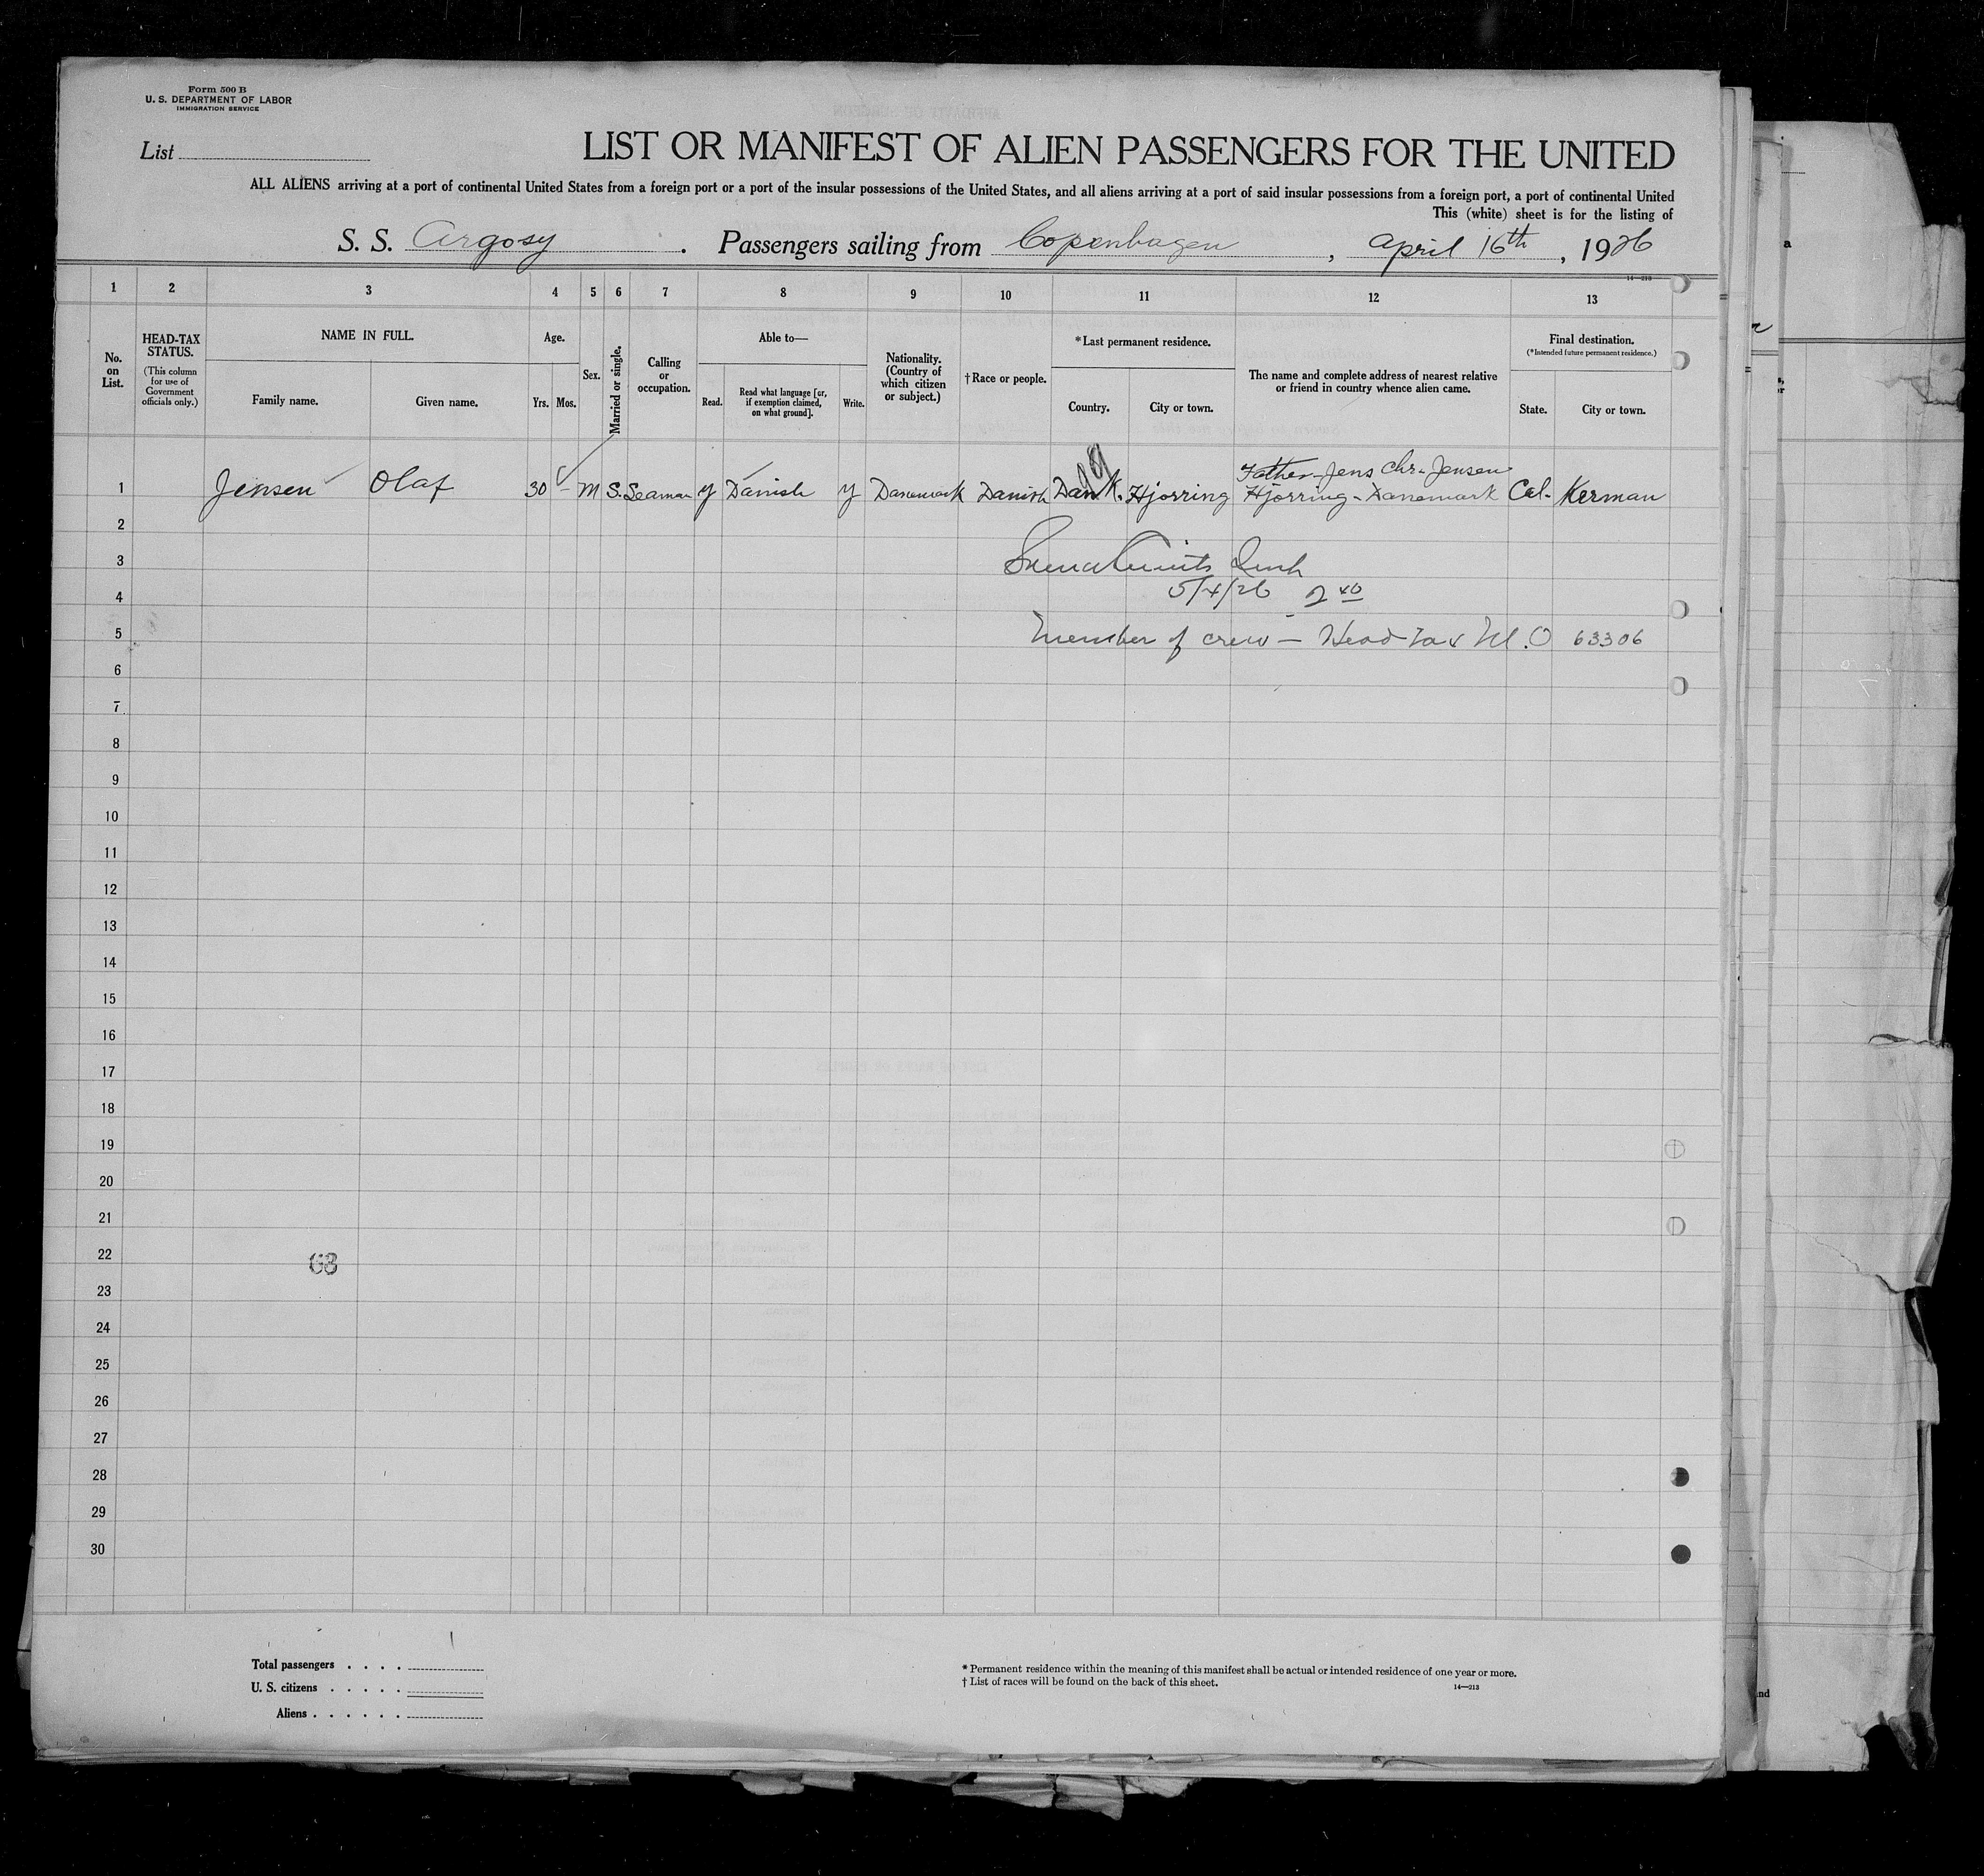 Form 500 B
U. S. DEPARTMENT OF LABOR
IMMIGRATION SERVICE
List
LIST OR MANIFEST OF ALIEN PASSENGERS FOR THE UNITED
ALL ALIENS arriving at a port of continental United States from a foreign port or a port of the insular possessions of the United States, and all aliens arriving at a port of said insular possessions from a foreign port, a port of continental United
This (white) sheet is for the listing of
S. S. Argosy . Passengers sailing from Copenhagen , April 16th , 1926
14—213
1 2 3 4 5 6 7 8 9 10 11 12 13
No. on List.
HEAD-TAX STATUS.
(This column for use of Government officials only.)
NAME IN FULL.
Family name. Given name.
Age.
Yrs. Mos.
Sex.
Married or single.
Calling or occupation.
Able to—
Read. Read what language [or, if exemption claimed, on what ground]. Write.
Nationality. (Country of which citizen or subject.)
†Race or people.
*Last permanent residence.
Country. City or town.
The name and complete address of nearest relative or friend in country whence alien came.
Final destination.
(*Intended future permanent residence.)
State. City or town.
Father-Jens Chr. Jensen
1 Jensen Olaf 30 - M S. Seaman y Danish y Danemark Danish Dan K. Hjorring Hjorring - Danemark Cal. Kerman
2
3
5/4/26 2 40
4
5 Member of crew — Head Tax M.O 63306
6
7
8
9
10
11
12
13
14
15
16
17
18
19
20
21
22
63
23
24
25
26
27
28
29
30
1
Total passengers . . . .
U. S. citizens . . . . .
Aliens . . . . . .
*Permanent residence within the meaning of this manifest shall be actual or intended residence of one year or more.
† List of races will be found on the back of this sheet.
14—213